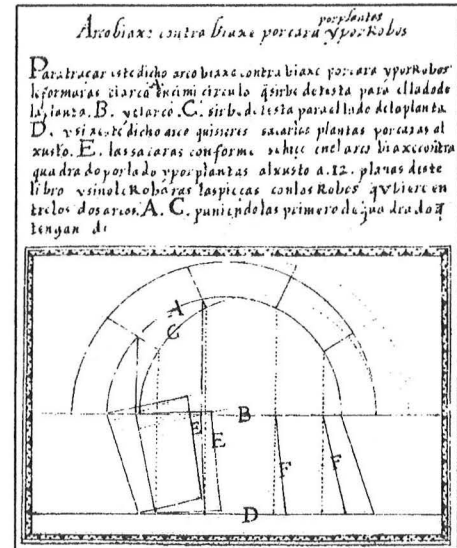 por plantas
Arco biaxe contra biaxe por cara y por Robos
Para traçar este dicho arco biaxe contra biaxe por cara y por Robos
le formaras el arco A en cimi circulo q̃ sirbe de testa para el lado de
la planta. B. y el arco. C. sirbe de testa para el lado de la planta
D. y si a este dicho arco quisieres sacar las plantas por caras al
xusto. E. las sacaras conforme se hiço en el arco biaxe contra
quadrado por lado y por plantas al xusto a .12. planas deste
libro y si no le Robaras las pieças con los Robos q̃ ubiere en
tre los dos arcos. A. C. puniendolas primero de quadrado q̃
tengan
A
C
B
E
E
F
F
D